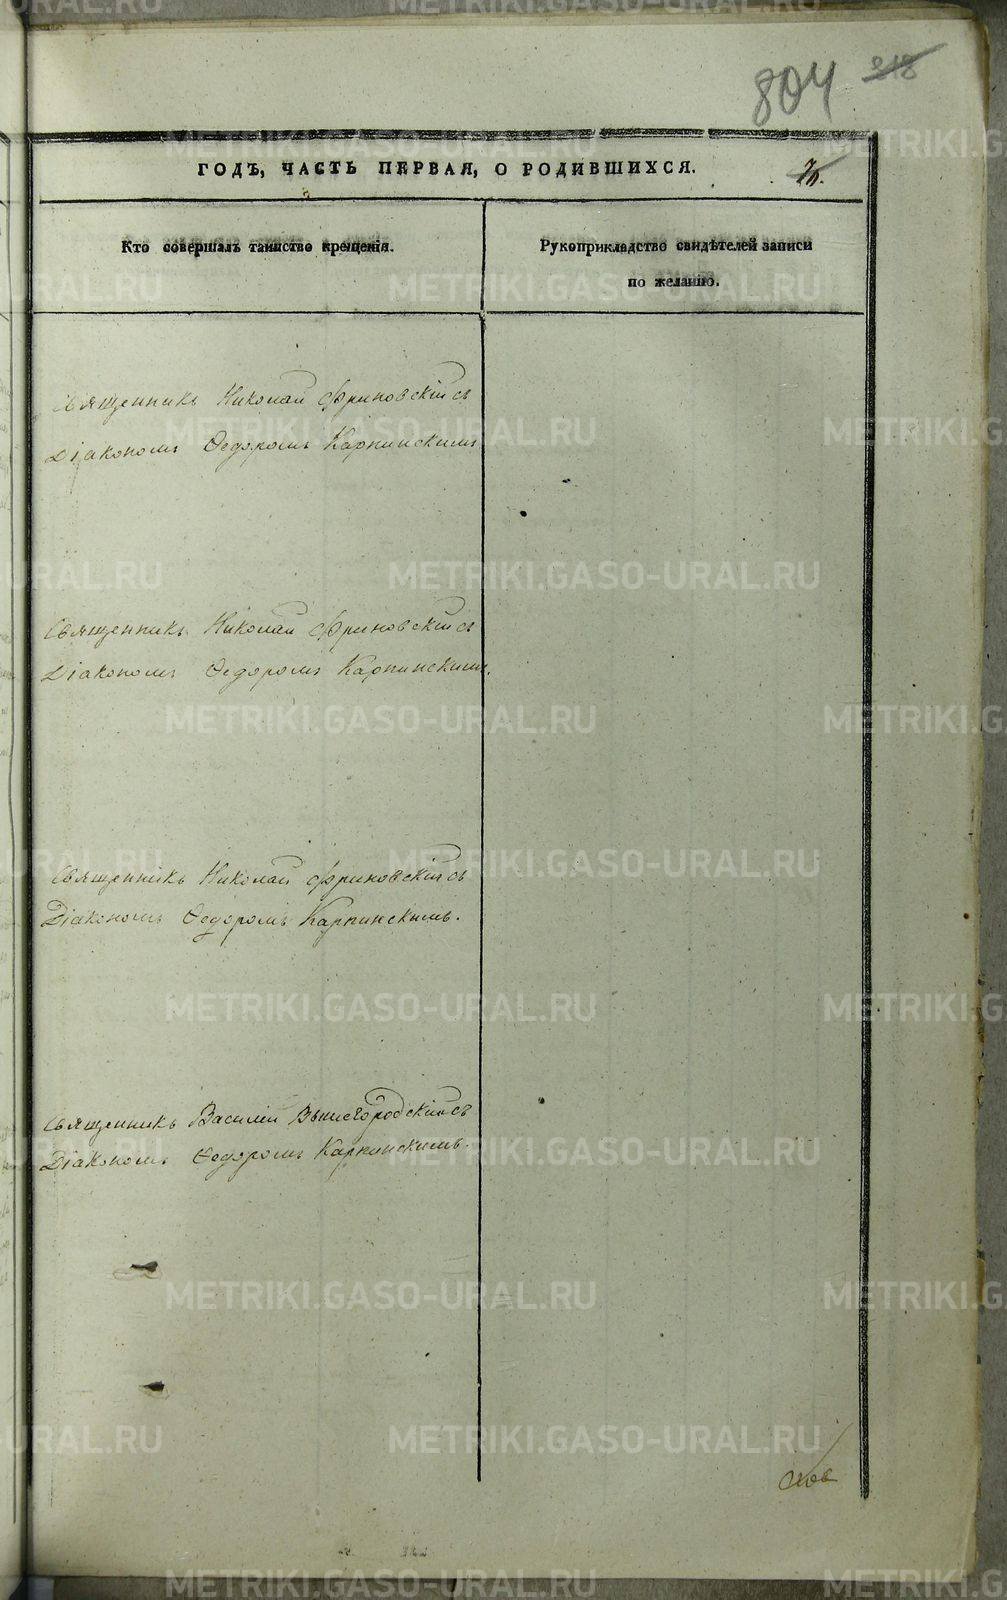 804 218
ГОДЪ, ЧАСТЬ ПЕРВАЯ, О РОДИВШИХСЯ.
Кто совершалъ таинство крещенія.
Рукоприкладство свидѣтелей записи
по желанію.
Священникъ Николай Фриновскій съ
Діакономъ Ѳедоромъ Карпинскимъ
Священникъ Николай Фриновскій съ
Діакономъ Ѳедоромъ Карпинскимъ.
Священникъ Николай Фриновскій съ
Діакономъ Ѳедоромъ Карпинскимъ.
Священникъ Василій Вышегородскій съ
Діакономъ Ѳедоромъ Карпинскимъ.
METRIKI.GASO-URAL.RU